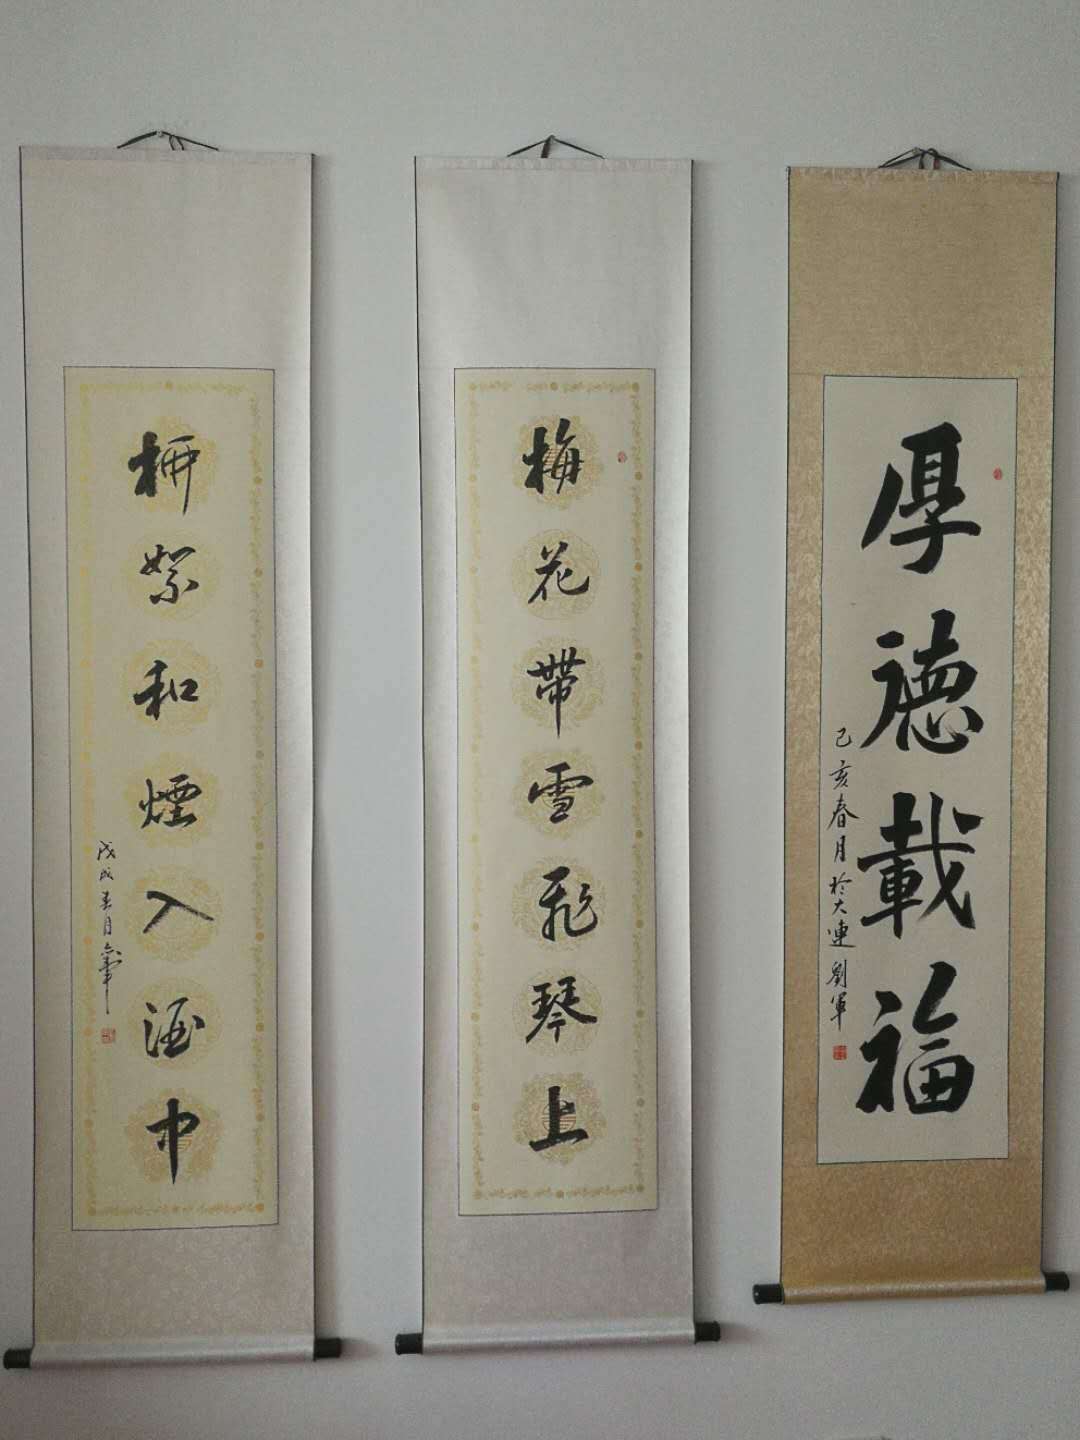 厚德載福
己亥春月於大連劉軍
梅花帶雪飛琴上
柳絮和煙入酒中
戊戌春月